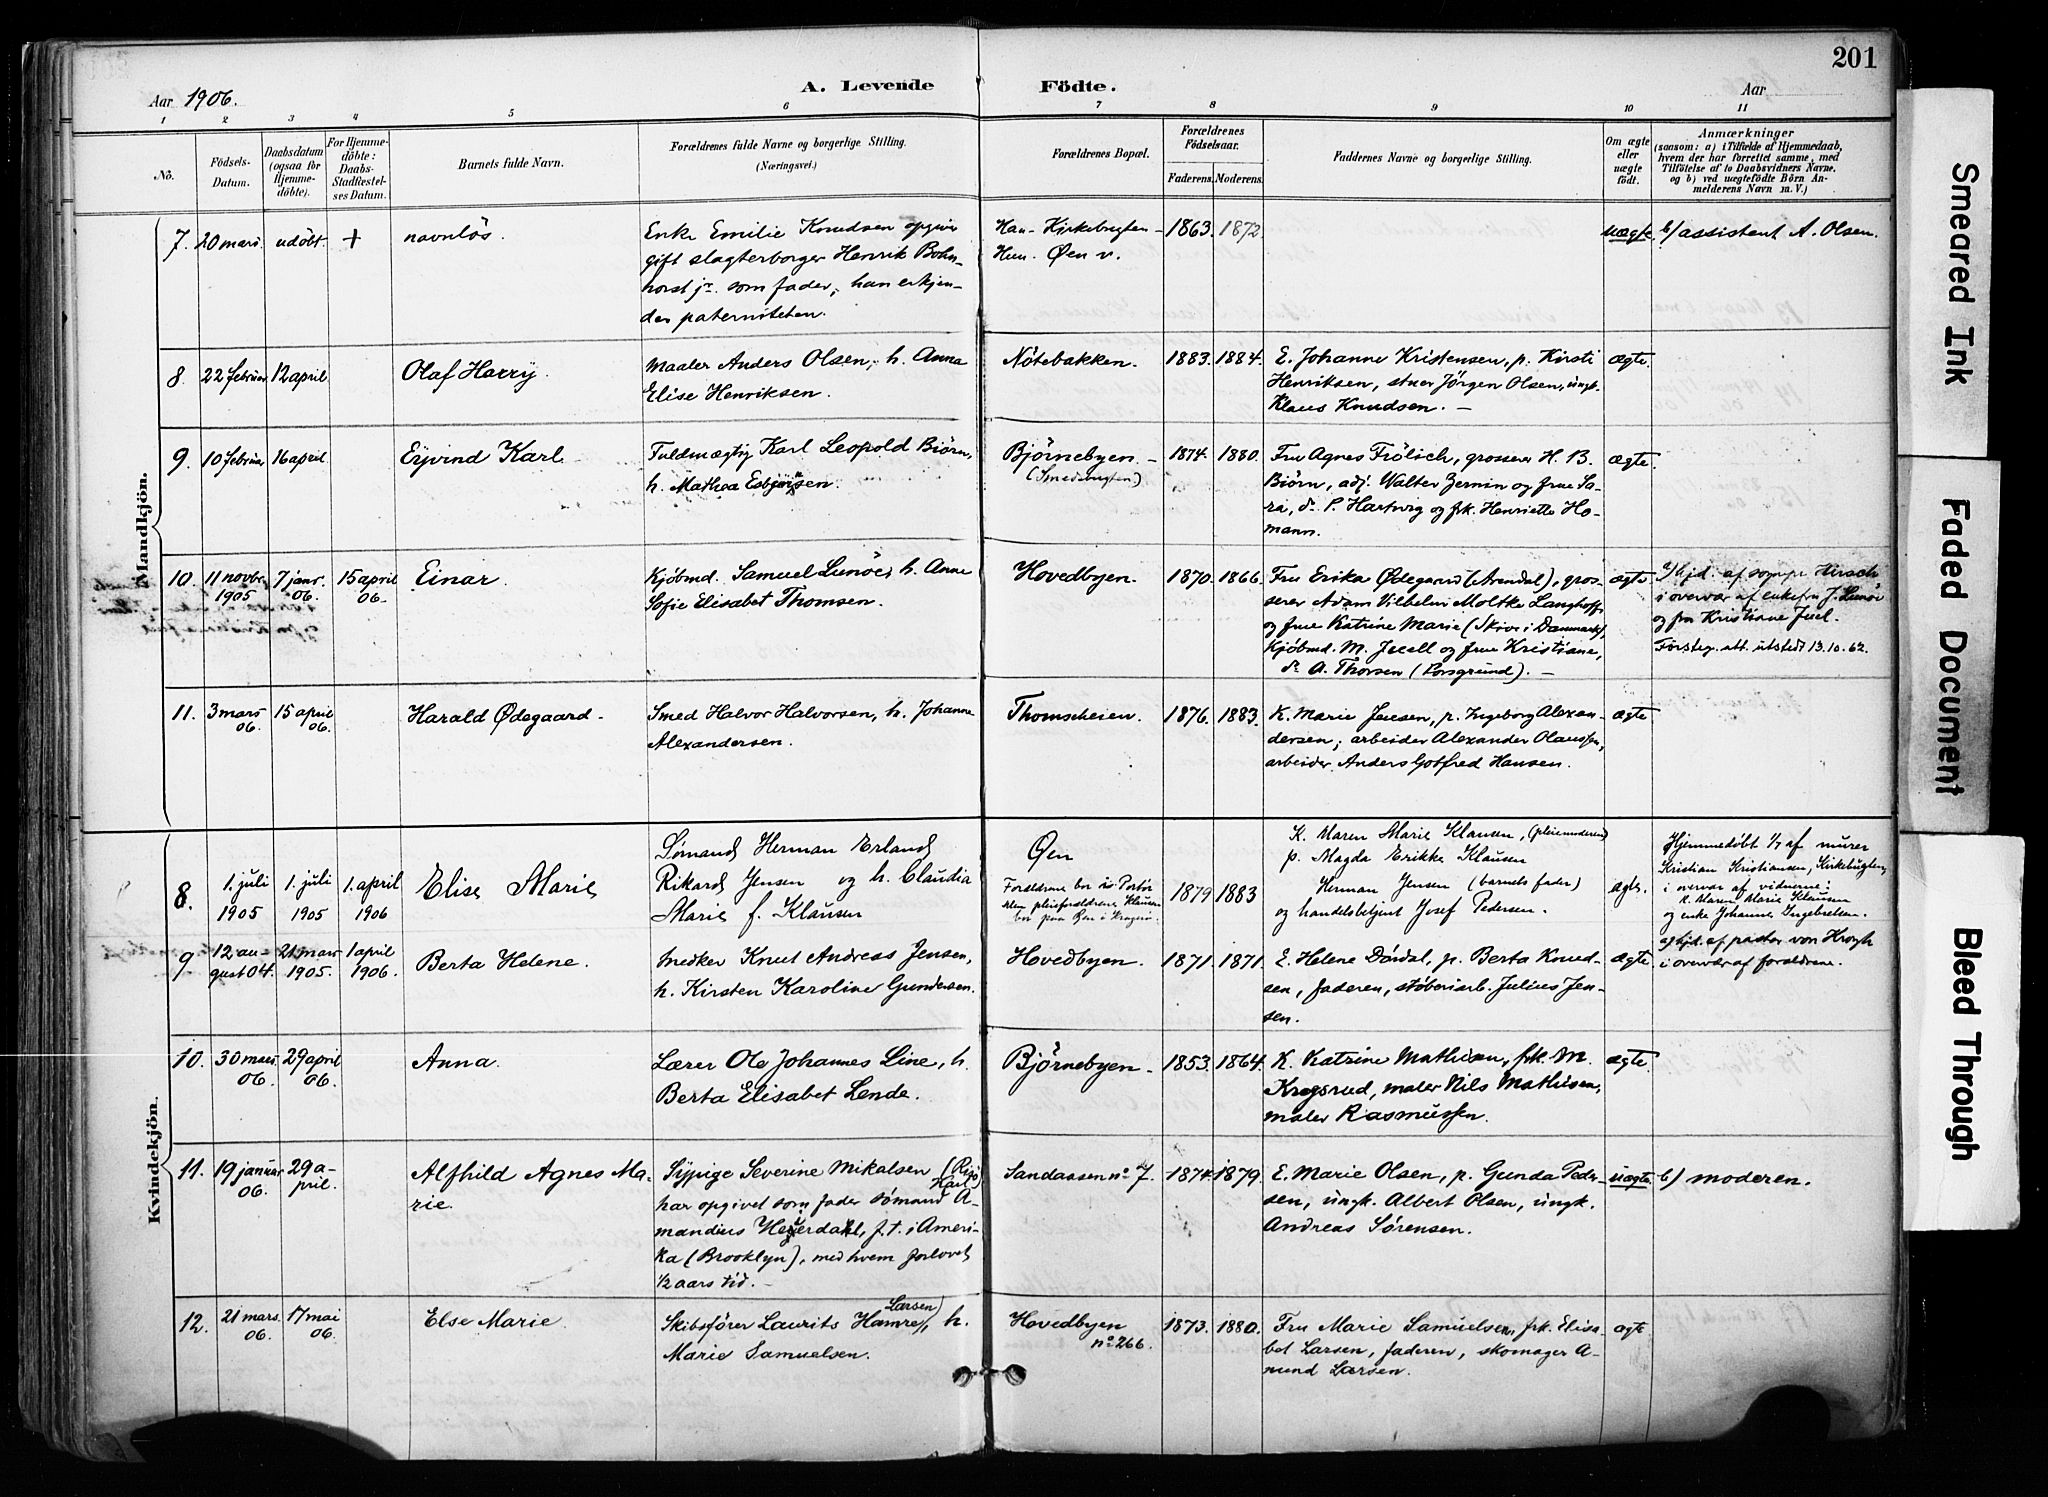 201
A. Levende Födte.
Aar 1906.
Aar
1 2 3 4 5 6 7 8 9 10 11
No.
Födsels-Datum.
Daabsdatum (ogsaa for Hjemmedöbte).
For Hjemmedöbte: Daabs-Stadfæstelses Datum.
Barnets fulde Navn.
Forældrenes fulde Navne og borgerlige Stilling. (Næringsvei.)
Forældrenes Bopæl.
Forældrenes Födselsaar.
Faderens. Moderens.
Faddernes Navne og borgerlige Stilling.
Om ægte eller uægte født.
Anmærkninger
(saasom: a) i Tilfælde af Hjemmedaab, hvem der har forrettet samme, med Tilföielse af to Daabsvidners Navne, og b) ved uægtefödte Börn Anmelderens Navn m. V.)
Mandkjön.
7. 20 mars. udöbt. + navnlös.
Enke Emilie Knudsen opgiver
gift slagterborger Henrik Bohn-
horst jr. som fader; han erkjen-
der paterniteten.
Han - Kirkebugten -
Hun. Øen v.
1863. 1872
uægte. b/ assistent A. Olsen.
8. 22 februar 12 april
Olaf Harry.
Maaler Anders Olsen, h. Anna
Elise Henriksen.
Nötebakken. 1883. 1884.
E. Johanne Kristensen, p. Kirsti
Henriksen, stuer Jörgen Olsen, ungk.
Klaus Knudsen. -
ægte.
9. 10 februar 16 april
Eyvind Karl
Fuldmægtig Karl Leopold Biörn,
h. Mathea Esbjørnsen.
Bjørnebyen -
(Smedsbugten)
1874. 1880.
Fru Agnes Frölich, grosserer H. B.
Biörn, adj. Walter Zernin og frue Sa-
ra, d. P. Hartwig og frk. Henriette Ho-
mann.
ægte.
10. 11 novbr. 1905 7 janr. 06. 15 april 06.
Einar.
Kjöbmd. Samuel Lunöe, h. Anne
Sofie Elisabet Thomsen.
Hovedbyen. 1870. 1866.
Fru Erika Ødegaard (Arendal), gros-
serer Adam Vilhelm Moltke Langhoff
og frue Katrine Marie (Skive i Danmark),
Kjöbmd. M. Juell og frue Kristiane,
d. A. Thorsen (Porsgrund). -
ægte
a/ hjd. af sompr Hirsch
i overvær af enkefru J. Lunöe
og fru Kristiane Juel.
Førsteg. att. utstedt 13.10.62.
11. 3 mars 06. 15 april 06.
Harald Ødegaard.
Smed Halvor Halvorsen, h. Johanne
Alexandersen.
Thomsheien. 1876. 1883.
K. Marie Jensen, p. Ingeborg Alexan-
dersen, arbeider Alexander Olaussen,
arbeider Anders Gotfred Hansen.
ægte
Kvindekjön.
8. 1. juli 1905 1. juli 1905 1. april 1906
Elise Marie
Sømand Herman Erland
Rikard Jensen og h. Claudia
Marie f. Klausen
Øen
Forældrene bor i Portör
men pleieforældrene Klausen
bor paa Øen i Kragerø
1879 1883
K. Maren Marie Klausen, (pleiemoderen)
p. Magda Erikke Klausen
Herman Jensen (barnets fader)
og handelsbetjent Josef Pedersen.
ægte.
Hjemmedöbt 1/7 af murer
Kristian Kristiansen, Kirkebugten,
i overvær af vidnerne:
k. Maren Marie Klausen
og enke Johanne Ingebretsen.
9 12 august 04. 21 mars 1905. 1 april 1906.
Berta Helene.
Snedker Knut Andreas Jensen,
h. Kirsten Karoline Gundersen.
Hovedbyen. 1871. 1871.
E. Helene Dördal, p. Berta Knud-
sen, faderen, støberiarb. Julius Jen-
sen.
ægte
a/ hjd. af pastor von Krogh
i overvær af forældrene.
10. 30 mars 06. 29 april 06.
Anna.
Lærer Ole Johannes Line, h.
Berta Elisabet Lende.
Bjørnebyen - 1853. 1864.
K. Katrine Mathisen, frk. M.
Krogsrud, maler Nils Mathisen,
maler Rasmussen.
ægte
11. 19 januar 06. 29 april.
Alfhild Agnes Ma-
rie.
Sypige Severine Mikalsen
har opgivet som fader sømand A-
mandius Heyerdahl, f. t. i Ameri-
ka (Brooklyn), med hvem forlovet
1/2 aars tid. -
Sandaasen no. 7. 1874. 1879.
E. Marie Olsen, p. Gunda Peder-
sen, ungk. Albert Olsen, ungk.
Andreas Sörensen.
uægte. b/ moderen.
12. 21 mars. 06. 17 mai 06.
Else Marie
Skibsfører Laurits Hamre (Larsen), h.
Marie Samuelsen.
Hovedbyen
no. 266.
1873. 1880.
Fru Marie Samuelsen, frk. Elisa-
bet Larsen, faderen, skomager A-
mund Larsen.
ægte
Smeared Ink
Faded Document
Bleed Through